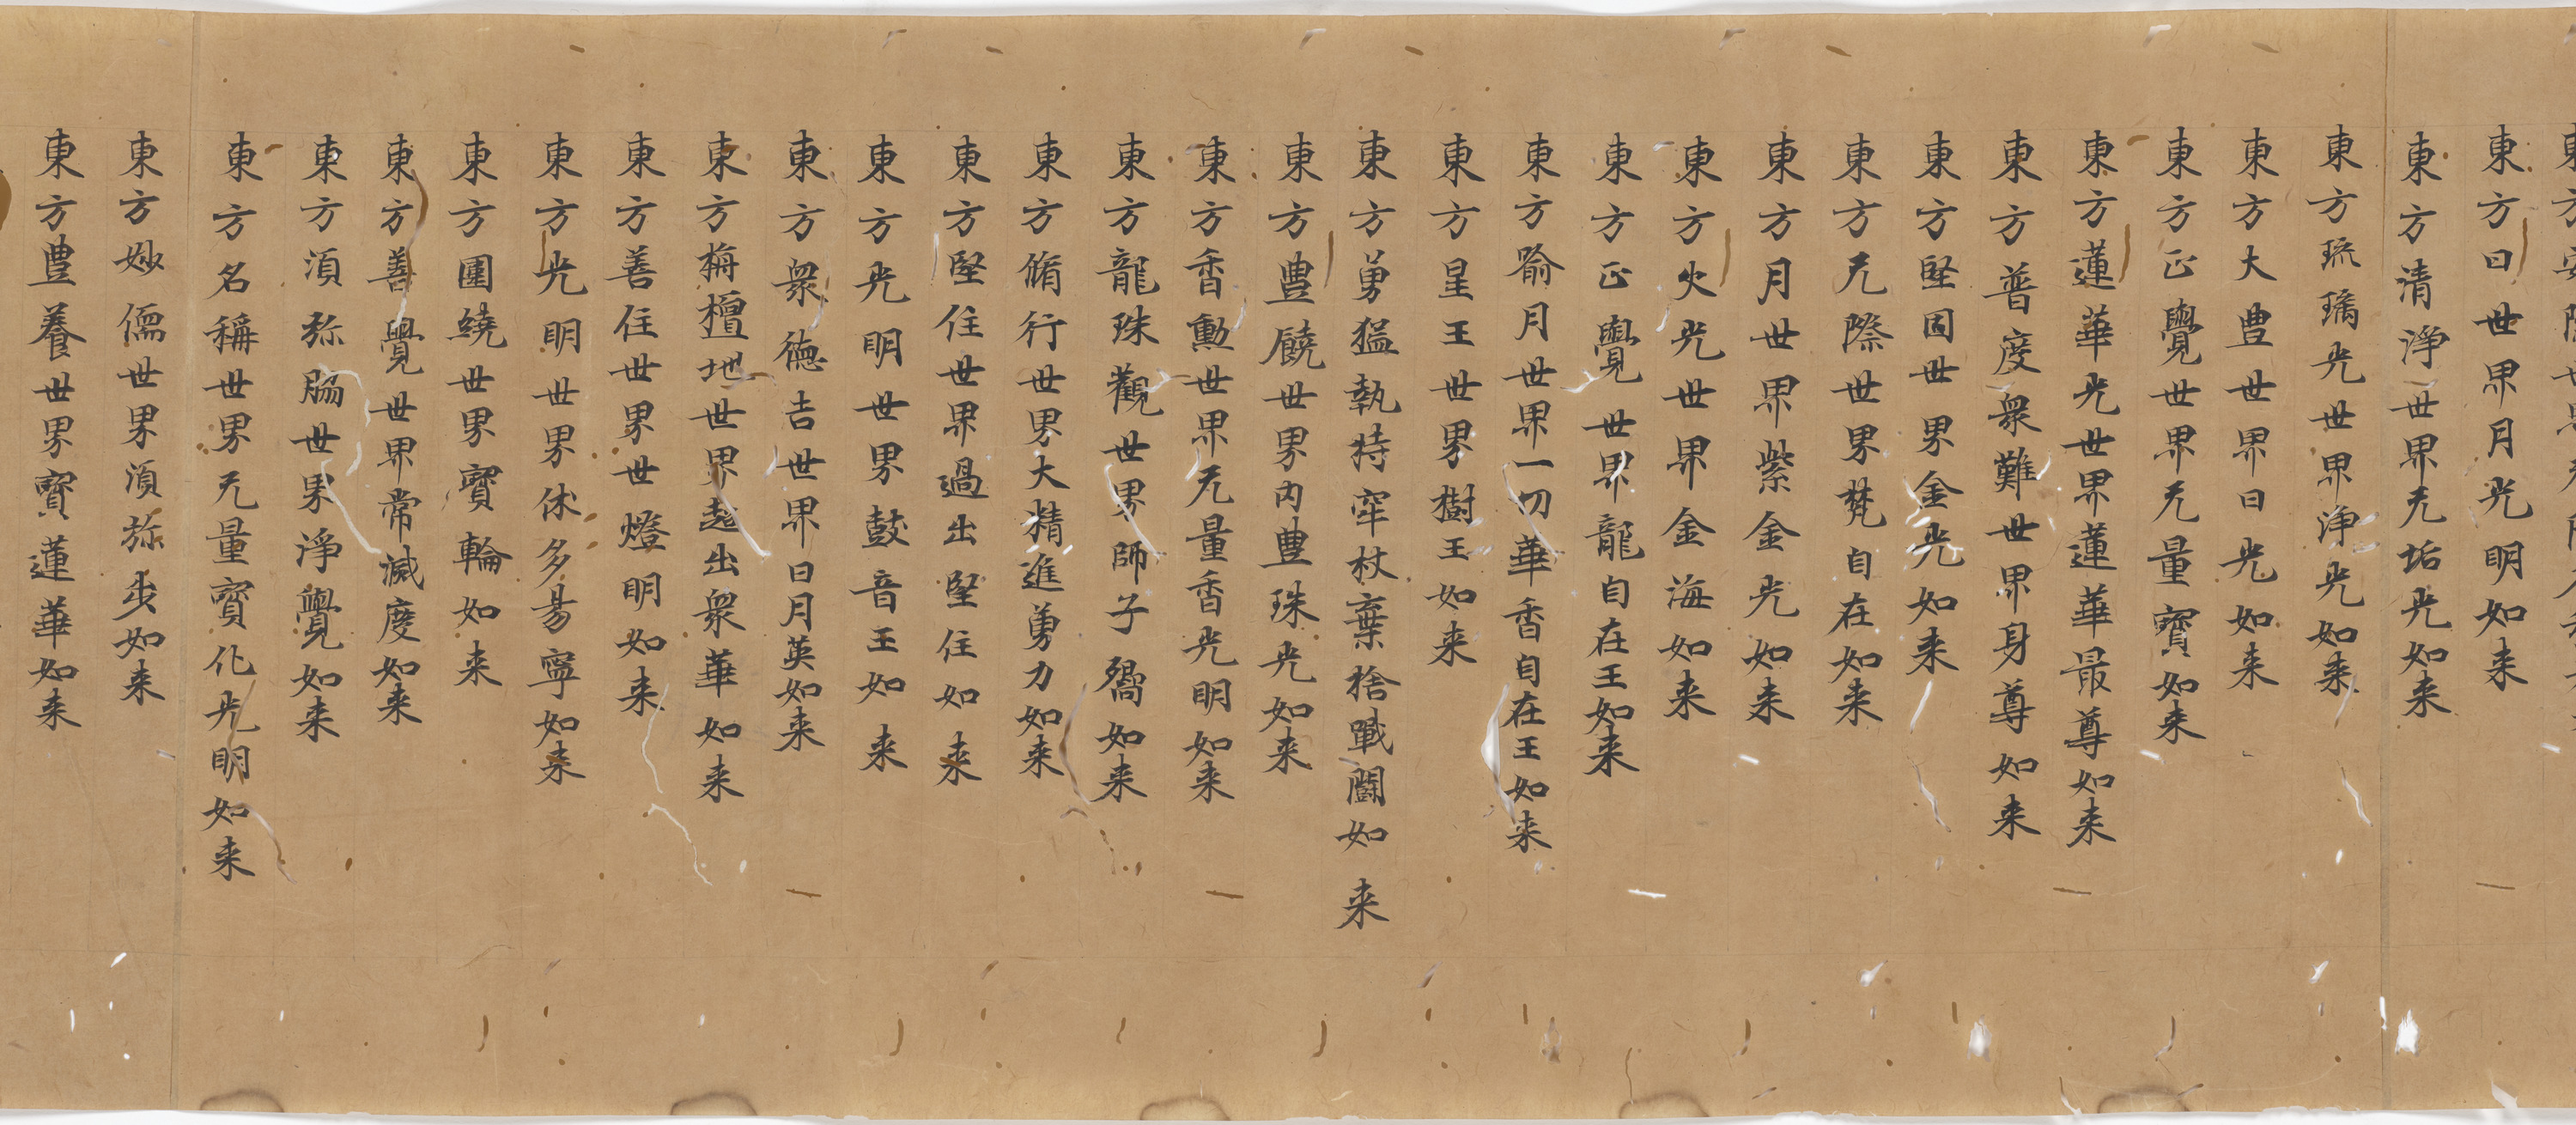 東方日世界月光明如来
東方清淨世界无垢光如来
東方琉璃光世界淨光如来
東方大豊世界日光如来
東方正覺世界无量寶如来
東方蓮華光世界蓮華最尊如来
東方普度衆難世界身尊如来
東方堅固世界金光如来
東方无際世界梵自在如来
東方月世界紫金光如来
東方火光世界金海如来
東方正覺世界龍自在王如来
東方喻月世界一切華香自在王如来
東方星王世界樹王如来
東方勇猛執持牢杖棄捨戰鬪如来
東方豊饒世界内豊珠光如来
東方香勳世界无量香光明如来
東方龍珠觀世界師子嚮如来
東方脩行世界大精進勇力如来
東方堅住世界過出堅住如来
東方光明世界鼓音王如来
東方衆德吉世界日月英如来
東方栴檀地世界超出衆華如来
東方善住世界世燈明如来
東方光明世界休多昜寧如来
東方圍繞世界寶輪如来
東方善覺世界常滅度如来
東方湏弥脇世界淨覺如来
東方名稱世界无量寶化光明如来
東方妙儒世界湏弥步如来
東方豊養世界寶蓮華如来